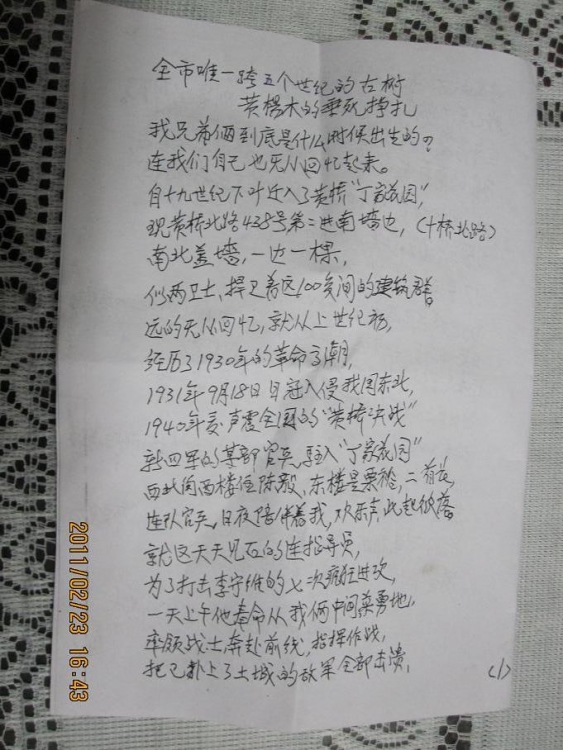 全市唯一跨五个世纪的古树
黄杨木的垂死挣扎
我兄弟俩到底是什么时候出生的?
连我们自己也无从回忆起来。
自十九世纪下叶迁入了黄桥"丁家花园",
现黄桥北路428号第二进南墙边,(十桥北路)
南北盖墙,一边一棵,
似两卫士、捍卫着这100多间的建筑群
远的无从回忆,就从上世纪初,
经历了1930年的革命高潮,
1931年9月18日日寇入侵我国东北,
1940年 声震全国的"黄桥决战"
新四军的某部官兵,驻入"丁家花园"
西北间西楼住陈毅、东楼是粟裕,
连队官兵,日夜陪伴着我,欢乐声此起彼落
就这天天见面的连指导员,
为了打击李守维的七次疯狂进攻,
一天上午他奉命从我俩中间英勇地,
率领战士奔赴前线,指挥作战,
把已扑上了土城的敌军全部击溃,
(1)
2011/02/23 16:43